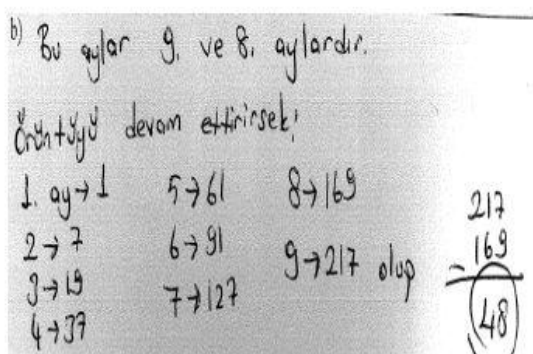 b) Bu aylar 9. ve 8. aylardır.
Örüntüyü devam ettirirsek;
1. ay → 1
2 → 7
3 → 19
4 → 37
5 → 61
6 → 91
7 → 127
8 → 169
9 → 217 olup
217
- 169
48